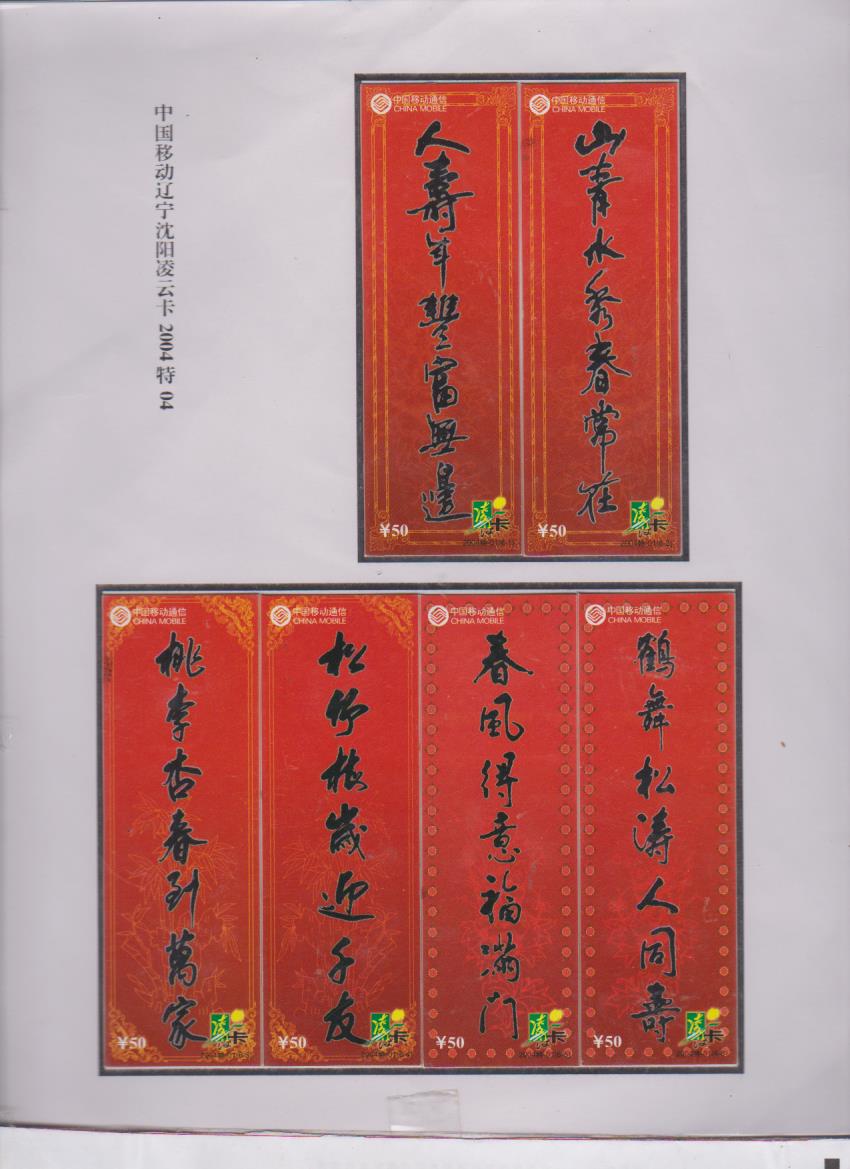 中国移动辽宁沈阳凌云卡 2004 特 04
中国移动通信
CHINA MOBILE
人壽年豐富無邊
¥50
卡
中国移动通信
CHINA MOBILE
山青水秀春常在
¥50
卡
中国移动通信
CHINA MOBILE
桃李杏春到萬家
¥50
卡
中国移动通信
CHINA MOBILE
松竹梅歲迎千友
¥50
卡
中国移动通信
CHINA MOBILE
春風得意福滿门
¥50
卡
中国移动通信
CHINA MOBILE
鶴舞松涛人同壽
¥50
卡